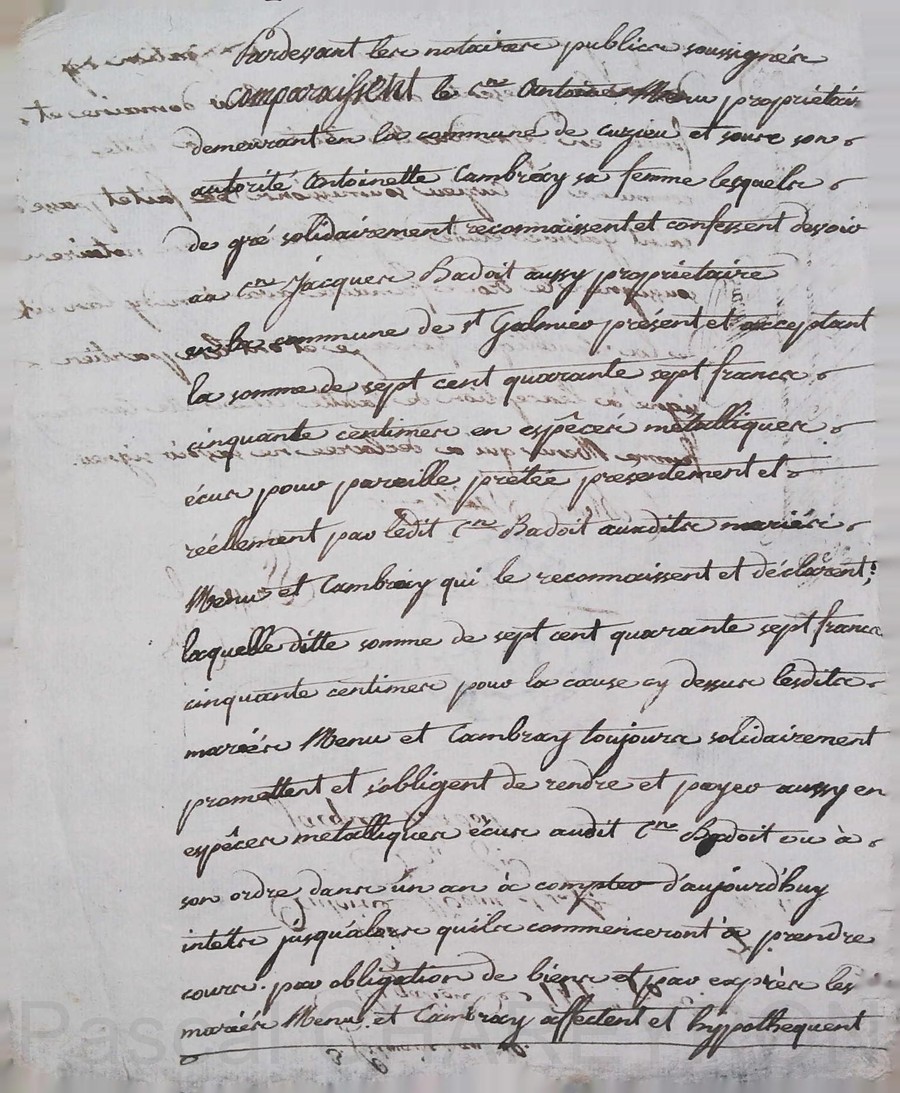 Pardevant les notaires publics soussignés
comparaissent le Cen Antoine Menu propriétaire
demeurant en la commune de cuzieu et sous son
autorité Antoinette Cambray sa femme lesquels
de gré solidairement reconnaissent et confessent devoir
au Cen Jacques Badoit aussy propriétaire
en la commune de st Galmier présent et acceptant
la somme de sept cent quarante sept francs
cinquante centimes en espêces métalliques
écus pour pareille prêtée présentement et
réellement par ledit Cen Badoit auxdits mariés
Menu et Cambray qui le reconnaissent et déclarent;
laquelle ditte somme de sept cent quarante sept francs
cinquante centimes pour la cause cy dessus lesdits
mariés Menu et Cambray toujours solidairement
promettent et s'obligent de rendre et payer aussy en
espêces métalliques écus audit Cen Badoit ou à
son ordre dans un an à compter d'aujourd'huy
intéts jusqu'alors qu'ils commenceront à prendre
cours. par obligation de biens et par exprès les
mariés Menu et Cambray affectent et hypothequent